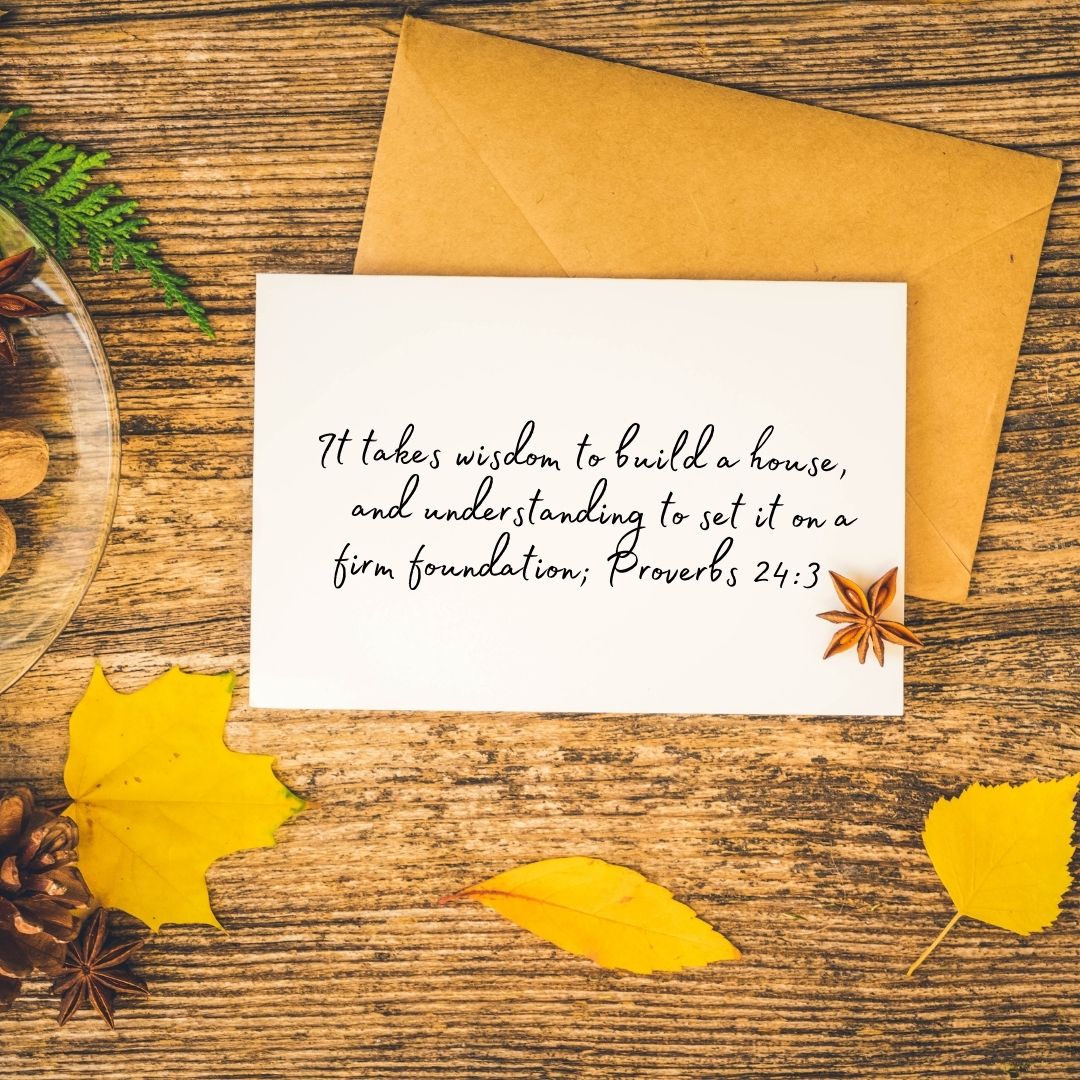 It takes wisdom to build a house,
and understanding to set it on a
firm foundation; Proverbs 24:3